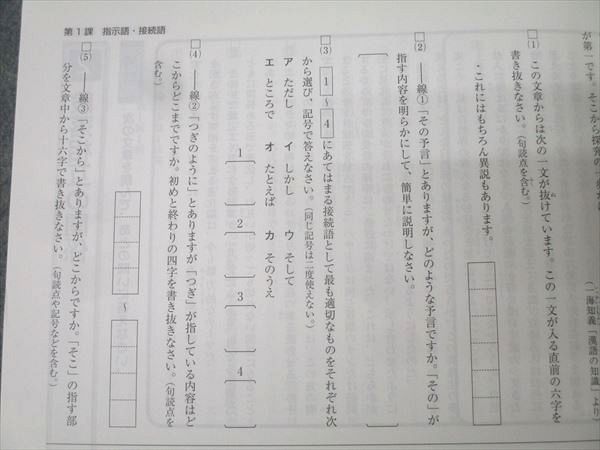 が第一です。そこから探究の
（一海知義「漢語の知識」より）
□(1) この文章からは次の一文が抜けています。この一文が入る直前の六字を
書き抜きなさい。（句読点を含む。）
・これにはもちろん異説もあります。
□(2) ――線①「その予言」とありますが、どのような予言ですか。「その」が
指す内容を明らかにして、簡単に説明しなさい。
□(3) 1 ～ 4 にあてはまる接続語として最も適切なものをそれぞれ次
から選び、記号で答えなさい。（同じ記号は二度使えない。）
ア ただし イ しかし ウ そして
エ ところで オ たとえば カ そのうえ
1 2 3 4
□(4) ――線②「つぎのように」とありますが「つぎ」が指している内容はど
こからどこまでですか。初めと終わりの四字を書き抜きなさい。（句読点を
含む。）
～
□(5) ――線③「そこから」とありますが、どこからですか。「そこ」の指す部
分を文章中から十六字で書き抜きなさい。（句読点や記号などを含む。）
第1課 指示語・接続語